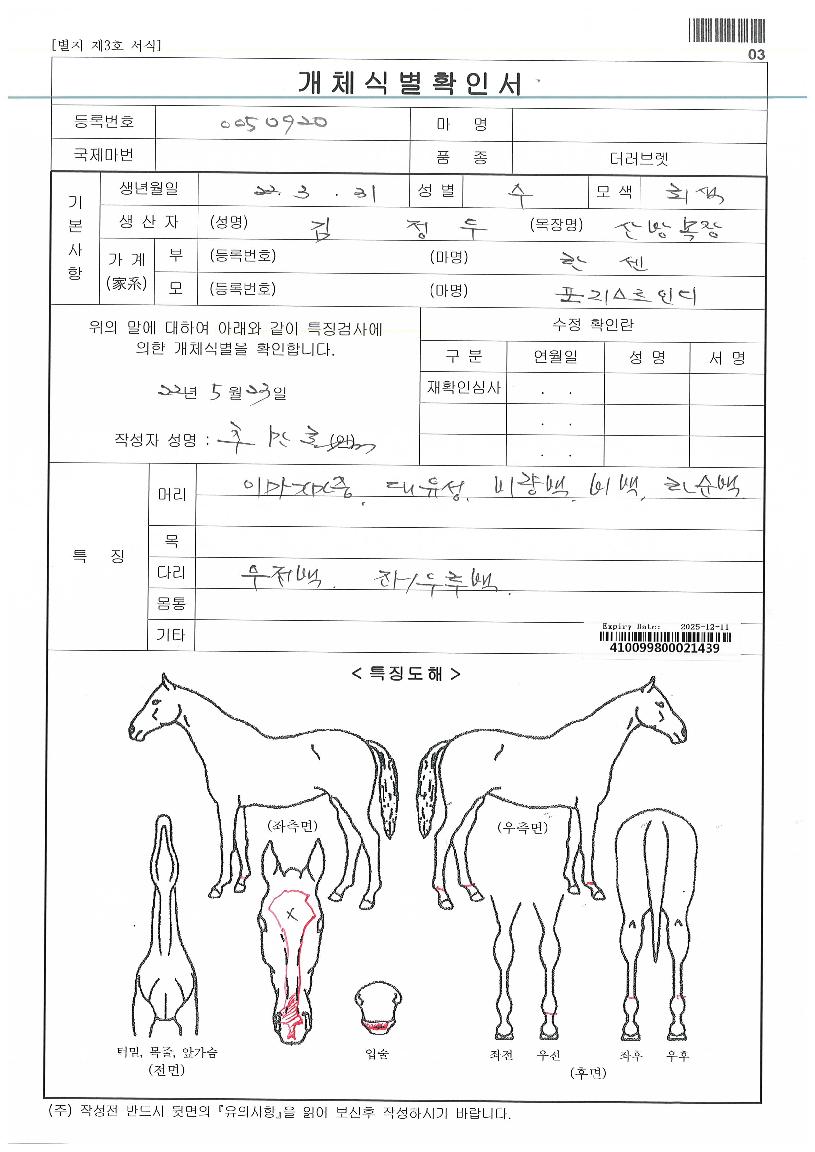 [별지 제3호 서식]
03
개체식별확인서
등록번호 0050920 마 명
국제마번 품 종 더러브렛
기본사항
생년월일 22. 3 . 31 성별 수 모색 회색
생산자 (성명) 김 정 두 (목장명) 산방목장
가계 (家系) 부 (등록번호) (마명) 한센
모 (등록번호) (마명) 프리스트인디
위의 말에 대하여 아래와 같이 특징검사에
의한 개체식별을 확인합니다.
22년 5월 23일
작성자 성명 :
수정 확인란
구분 연월일 성명 서명
재확인심사 . .
. .
. .
특징
머리 이마자중, 대유성, 비량백, 비백, 하순백
목
다리 우전백. 좌/우후백.
몸통
기타
Expiry Date: 2025-12-11
410099800021439
< 특징도해 >
(좌측면) (우측면)
X
터밑, 목줄, 앞가슴
(전면)
입술
좌전 우전 좌후 우후
(후면)
(주) 작성전 반드시 뒷면의 『유의사항』을 읽어 보신후 작성하시기 바랍니다.